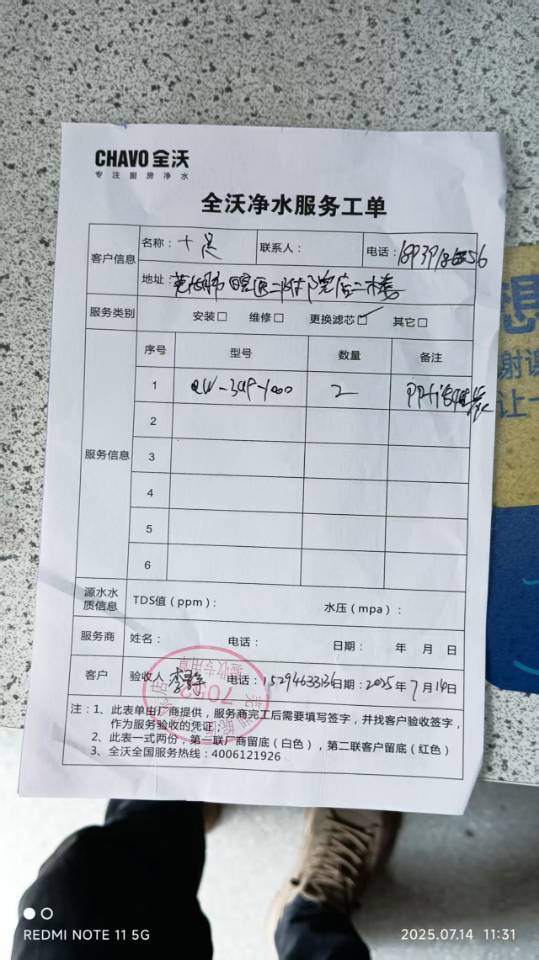 CHAVO 全沃
专注厨房净水
全沃净水服务工单
客户信息
名称：十足
联系人：
电话：
地址
二楼
服务类别
安装□ 维修□ 更换滤芯☑ 其它□
服务信息
序号 型号 数量 备注
1 2
2
3
4
5
6
源水水质信息
TDS值（ppm）： 水压（mpa）：
服务商 姓名： 电话： 日期： 年 月 日
客户 验收人 电话：15294633126 日期：2025年7月14日
验收专用章
注：1、此表单由厂商提供，服务商完工后需要填写签字，并找客户验收签字，
作为服务验收的凭证；
2、此表一式两份，第一联厂商留底（白色），第二联客户留底（红色）
3、全沃全国服务热线：4006121926
想
谢
让一
REDMI NOTE 11 5G
2025.07.14 11:31